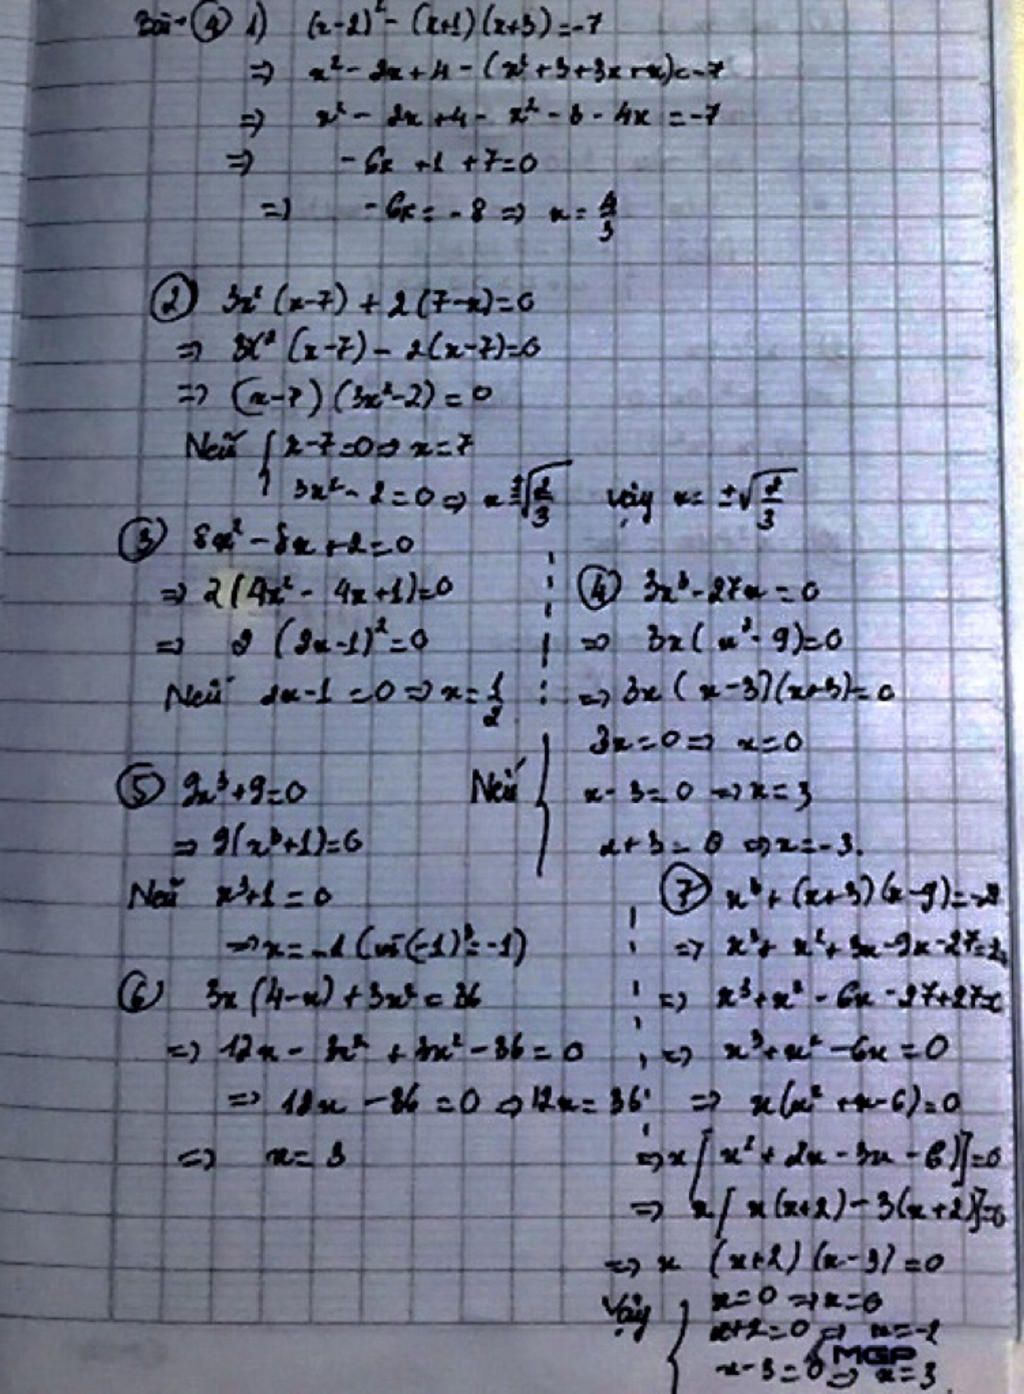 Bài 4 1) (x-2)² - (x+1)(x+3) = -7
=> x² - 2x + 4 - (x² + 3 + 3x + x) = -7
=> x² - 2x + 4 - x² - 3 - 4x = -7
=> -6x + 1 + 7 = 0
=> -6x = -8 => x = 4/3
2) 3x² (x-7) + 2(7-x) = 0
=> 3x² (x-7) - 2(x-7) = 0
=> (x-7)(3x²-2) = 0
Nếu { x-7=0 => x=7
3x² - 2 = 0 => x = ±√2/3 Vậy x = ±√2/3
3) 8x² - 8x + 2 = 0
=> 2(4x² - 4x + 1) = 0
=> 2 (2x-1)² = 0
Nếu 2x-1 = 0 => x = 1/2
4) 3x³ - 27x = 0
=> 3x( x² - 9) = 0
=> 3x ( x-3)(x+3) = 0
Nếu { 3x = 0 => x = 0
x - 3 = 0 => x = 3
x + 3 = 0 => x = -3.
5) 9x³ + 9 = 0
=> 9(x³+1) = 0
Nếu x³+1 = 0
=> x = -1 (vì (-1)³ = -1)
6) 3x (4-x) + 3x² = 36
=> 12x - 3x² + 3x² - 36 = 0
=> 12x - 36 = 0 => 12x = 36
=> x = 3
7) x³ + (x+3)(x-9) = -2
=> x³ + x² + 3x - 9x - 27 = -2
=> x³ + x² - 6x - 27 + 27 =
=> x³ + x² - 6x = 0
=> x(x² + x - 6) = 0
=> x [ x² + 2x - 3x - 6 ] = 0
=> x [ x(x+2) - 3(x+2) ] = 0
=> x (x+2)(x-3) = 0
Vậy { x = 0 => x = 0
x+2 = 0 => x = -2
x - 3 = 0 => x = 3
MGP